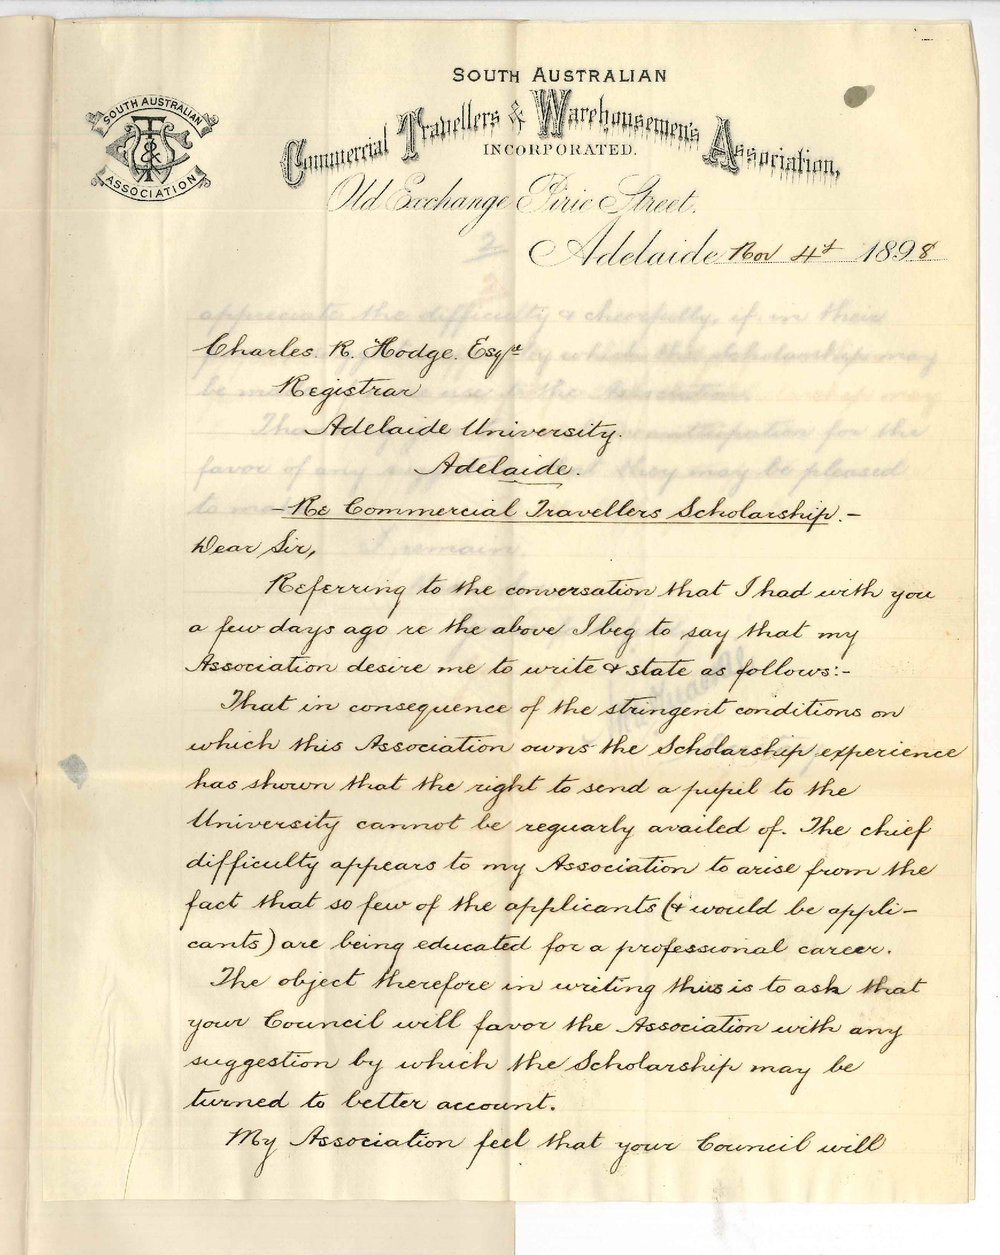 SOUTH AUSTRALIAN
Commercial Travellers & Warehousemen's Association,
INCORPORATED.
SOUTH AUSTRALIAN
ASSOCIATION
Old Exchange Pirie Street.
Adelaide Nov 4th 1898
Charles. R. Hodge. Esqre
Registrar
Adelaide University.
Adelaide.
- Re Commercial Travellers Scholarship. -
Dear Sir,
Referring to the conversation that I had with you
a few days ago re the above I beg to say that my
Association desire me to write & state as follows:-
That in consequence of the stringent conditions on
which this Association owns the Scholarship experience
has shown that the right to send a pupil to the
University cannot be reguarly availed of. The chief
difficulty appears to my Association to arise from the
fact that so few of the applicants (& would be appli-
cants) are being educated for a professional career.
The object therefore in writing this is to ask that
your Council will favor the Association with any
suggestion by which the Scholarship may be
turned to better account.
My Association feel that your Council will